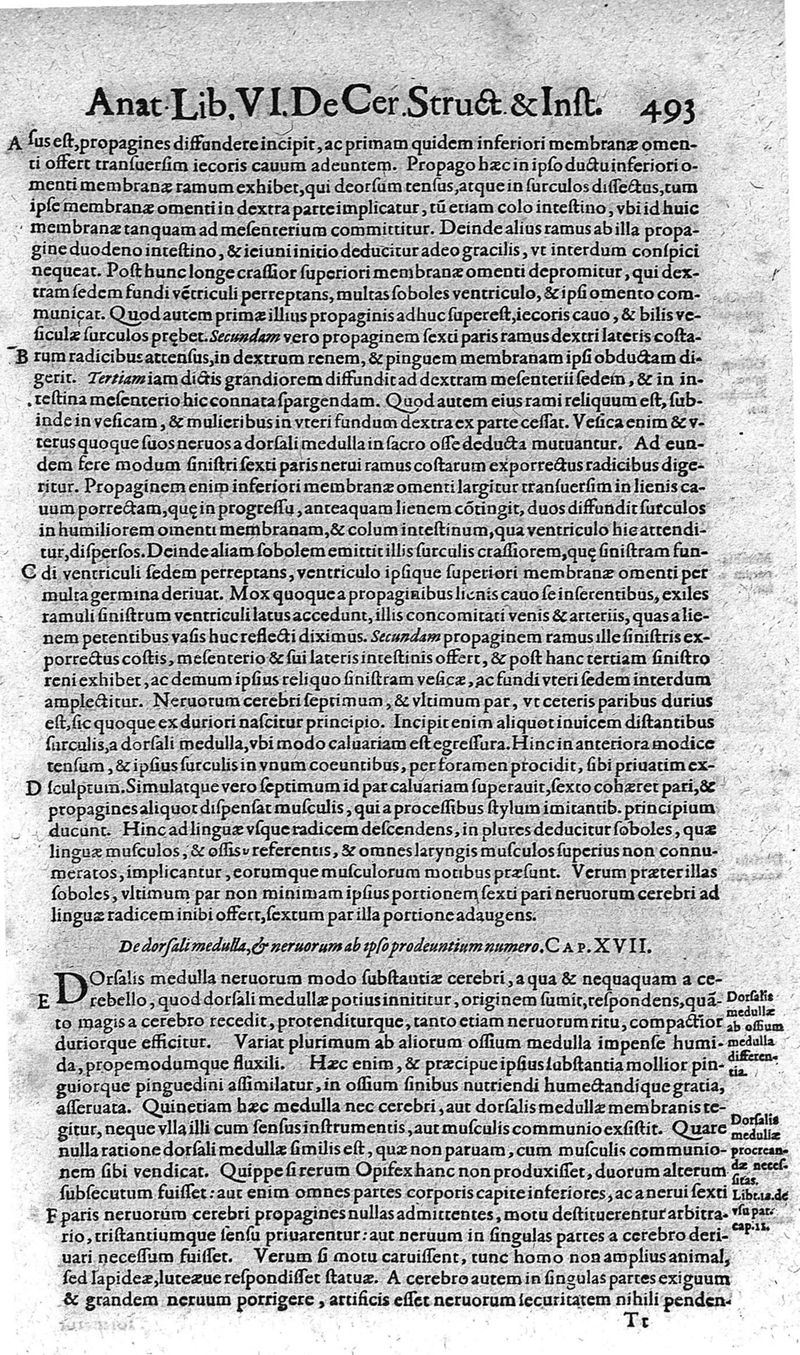 Anat. Lib. VI. De Cer. Struct. & Inst. 493
A sus est, propagines diffundere incipit, ac primam quidem inferiori membranæ omen-
ti offert transuersim iecoris cauum adeuntem. Propago hæc in ipso ductu inferiori o-
menti membranæ ramum exhibet, qui deorsùm tensus, atque in surculos dissectus, tum
ipse membranæ omenti in dextra parte implicatur, tũ etiam colo intestino, vbi id huic
membranæ tanquam ad mesenterium committitur. Deinde alius ramus ab illa propa-
gine duodeno intestino, & ieiuni initio deducitur adeo gracilis, vt interdum conspici
nequeat. Post hunc longe crassior superiori membranæ omenti depromitur, qui dex-
tram sedem fundi vẽtriculi perreptans, multas soboles ventriculo, & ipsi omento com-
municat. Quod autem primæ illius propaginis adhuc superest, iecoris cauo, & bilis ve-
siculæ surculos prębet. Secundam vero propaginem sexti paris ramus dextri lateris costa-
B rum radicibus attensus, in dextrum renem, & pinguem membranam ipsi obductam di-
gerit. Tertiam iam dictis grandiorem diffundit ad dextram mesenterii sedem, & in in-
testina mesenterio hic connata spargendam. Quod autem eius rami reliquum est, sub-
inde in vesicam, & mulieribus in vteri fundum dextra ex parte cessat. Vesica enim & v-
terus quoque suos neruos a dorsali medulla in sacro osse deducta mutuantur. Ad eun-
dem fere modum sinistri sexti paris nerui ramus costarum exporrectus radicibus dige-
ritur. Propaginem enim inferiori membranæ omenti largitur transuersim in lienis ca-
uum porrectam, quę in progressu, anteaquam lienem cõtingit, duos diffundit surculos
in humiliorem omenti membranam, & colum intestinum, qua ventriculo hic attendi-
tur, dispersos. Deinde aliam sobolem emittit illis surculis crassiorem, quę sinistram fun-
C di ventriculi sedem perreptans, ventriculo ipsique superiori membranæ omenti per
multa germina deriuat. Mox quoque a propaginibus lienis cauo se inserentibus, exiles
ramuli sinistrum ventriculi latus accedunt, illis concomitati venis & arteriis, quas a lie-
nem petentibus vasis huc reflecti diximus. Secundam propaginem ramus ille sinistris ex-
porrectus costis, mesenterio & sui lateris intestinis offert, & post hanc tertiam sinistro
reni exhibet, ac demum ipsius reliquo sinistram vesicæ, ac fundi vteri sedem interdum
amplectitur. Neruorum cerebri septimum, & vltimum par, vt ceteris paribus durius
est, sic quoque ex duriori nascitur principio. Incipit enim aliquot inuicem distantibus
surculis, a dorsali medulla, vbi modo caluariam est egressura. Hinc in anteriora modice
tensum, & ipsius surculis in vnum coeuntibus, per foramen procidit, sibi priuatim ex-
D sculptum. Simulatque vero septimum id par caluariam superauit, sexto cohæret pari, &
propagines aliquot dispensat musculis, qui a processibus stylum imitantib. principium
ducunt. Hinc ad linguæ vsque radicem descendens, in plures deducitur soboles, quæ
linguæ musculos, & ossis υ referentis, & omnes laryngis musculos superius non connu-
meratos, implicantur, eorumque musculorum motibus præsunt. Verum præter illas
soboles, vltimum par non minimam ipsius portionem sexti pari neruorum cerebri ad
linguæ radicem inibi offert, sextum par illa portione adaugens.
De dorsali medulla, & neruorum ab ipso prodeuntium numero. CAP. XVII.
DOrsalis medulla neruorum modo substãtiæ cerebri, a qua & nequaquam a ce-
E rebello, quod dorsali medullæ potius innititur, originem sumit, respondens, quã-
to magis a cerebro recedit, protenditurque, tanto etiam neruorum ritu, compactior
duriorque efficitur. Variat plurimum ab aliorum ossium medulla impense humi-
da, propemodumque fluxili. Hæc enim, & præcipue ipsius substantia mollior pin-
guiorque pinguedini assimilatur, in ossium sinibus nutriendi humectandique gratia,
asseruata. Quinetiam hæc medulla nec cerebri, aut dorsalis medullæ membranis te-
gitur, neque vlla illi cum sensus instrumentis, aut musculis communio existit. Quare
nulla ratione dorsali medullæ similis est, quæ non paruam, cum musculis communio-
nem sibi vendicat. Quippe si rerum Opifex hanc non produxisset, duorum alterum
subsecutum fuisset: aut enim omnes partes corporis capite inferiores, ac a nerui sexti
F paris neruorum cerebri propagines nullas admittentes, motu destituerentur arbitra-
rio, tristantiumque sensu priuarentur: aut neruum in singulas partes a cerebro deri-
uari necessum fuisset. Verum si motu caruissent, tunc homo non amplius animal,
sed lapideæ, luteæue respondisset statuæ. A cerebro autem in singulas partes exiguum
& grandem neruum porrigere, artificis esset neruorum securitatem nihili penden-
Tt
Dorsalis
medullæ
ab ossium
medulla
differen-
tia.
Dorsalis
medullæ
procrean-
dæ neces-
sitas.
Lib. 12. de
vsu par.
cap. 11.